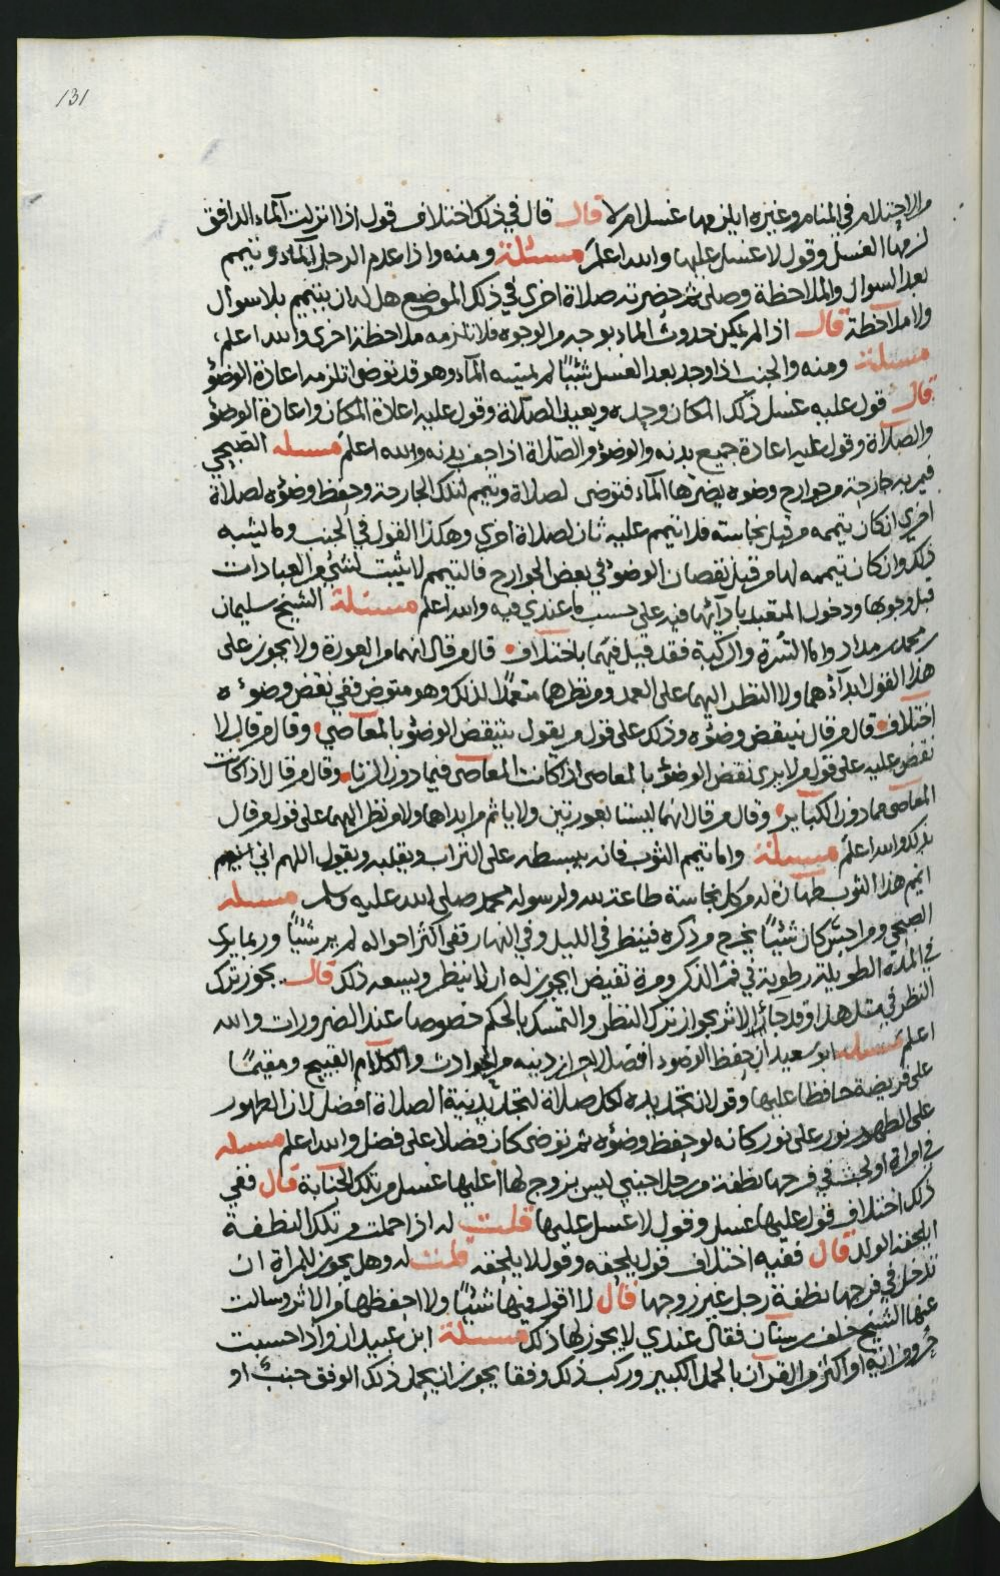 131
من الاحتلام في المنام وغيره ايلزمها غسل ام لا قال قال في ذلك اختلاف قول اذا انزلت الماء الدافق
لزمها الغسل وقول لا غسل عليها والله اعلم مسئلة ومنه واذا عدم الرجل الماء وتيمم
بعد السوال والملاحظة وصلى ثم حضرته صلاة اخرى في ذلك الموضع هل له ان يتيمم بلا سوال
ولا ملاحظة قال اذا لم يمكن حدوث الماء بوجه من الوجوه فلا تلزمه ملاحظة اخرى والله اعلم
مسئلة ومنه والجنب اذا وجد بعد الغسل شيئا لم يمسه الماء وهو قد توضى اتلزمه اعادة الوضؤ
قال قول عليه غسل ذلك المكان وحده ويعيد الصلاة وقول عليه اعادة المكان واعادة الوضؤ
والصلاة وقول عليه اعادة جميع بدنه والوضؤ والصلاة اذا جف بدنه والله اعلم مسئله الصبحي
فيمن به جارحة من جوارح وضوه يضرها الماء فتوضى لصلاة وتيمم لتلك الجارحة وحفظ وضؤه لصلاة
اخرى ان كان يتيممه من قبل نجاسته فلا تيمم عليه ثان لصلاة اخرى وهكذا القول في الجنب وما يشبه
ذلك وان كان تيممه لها من قبل نقصان الوضؤ في بعض الجوارح فالتيمم لا يثبت لشئ من العبادات
قبل وجوبها ودخول المتعبد بادآئها فيه على حسب ما عندي فيه والله اعلم مسئلة الشيخ سليمان
بن محمد بن مداد واما السرة والركبة فقد قيل فيهما باختلاف قال من قال انهما من العورة ولا يجوز على
هذا القول ابدآؤهما ولا النظر اليهما على العمد ومن نظرهما متعمدا لذلك وهو متوض ففي نقض وضوءه
اختلاف قال من قال ينتقض وضؤه وذلك على قول من يقول ينتقض الوضؤ بالمعاصي وقال من قال لا
نقض عليه على قول من لا يرى نقض الوضؤ بالمعاصي اذا كانت المعاصي فيما دون الزنا وقال من قال اذا كانت
المعاصي مما دون الكبآير وقال من قال انهما ليستا بعورتين ولا ياثم من ابداهما ولا من نظر اليهما على قول من قال
بذلك والله اعلم مسئلة واما تيمم الثوب فانه يبسطه على التراب ويقلبه ويقول اللهم اني اتيمم
اتيمم هذا الثوب طهارة له من كل نجاسة طاعة لله ولرسوله محمد صلى الله عليه وسلم مسئله
الصبحي ومن احس كان شيئا يخرج من ذكره فينظر في الليل وفي النهار ففي اكثر احواله لم ير شيئا وربما يرى
في المدة الطويلة رطوبة في فم الذكر ومرة تفيض ايجوز له ان لا ينظر ويسعه ذلك قال يجوز ترك
النظر في مثل هذا وقد جآء الاثر بجواز ترك النظر والتمسك بالحكم خصوصا عند الضرورات والله
اعلم مسئله ابو سعيد ان حفظ الوضوء افضل لاحراز دينه من الحوادث والكلام القبيح ومقيما
على فريضة حافظا عليها وقول ان تجديده لكل صلاة لتجديد نية الصلاة افضل لان الطهور
على الطهور نور على نور كانه لو حفظ وضؤه ثم توضى كان فضلا على فضل والله اعلم مسئله
في امراة اولجت في فرجها نطفة من رجل اجنبي ليس بزوج لها اعليها غسل من تلك الجنابة قال ففي
ذلك اختلاف قول عليها غسل وقول لا غسل عليها قلت له اذا حملت من تلك النطفة
ايلحقه الولد قال ففيه اختلاف قول يلحقه وقول لا يلحقه قلت له وهل يجوز للمراة ان
تدخل في فرجها نطفة رجل غير زوجها قال لا اقول فيها شيئا ولا احفظها من الاثر وسالت
عنها الشيخ خلف بن سنان فقال عندي لا يجوز لها ذلك مسئلة ابن عبيدان واذا حسبت
حروف اية او اكثر من القرآن بالجمل الكبير وركب ذلك وفقا يجوز ان يحمل ذلك الوفق جنب او